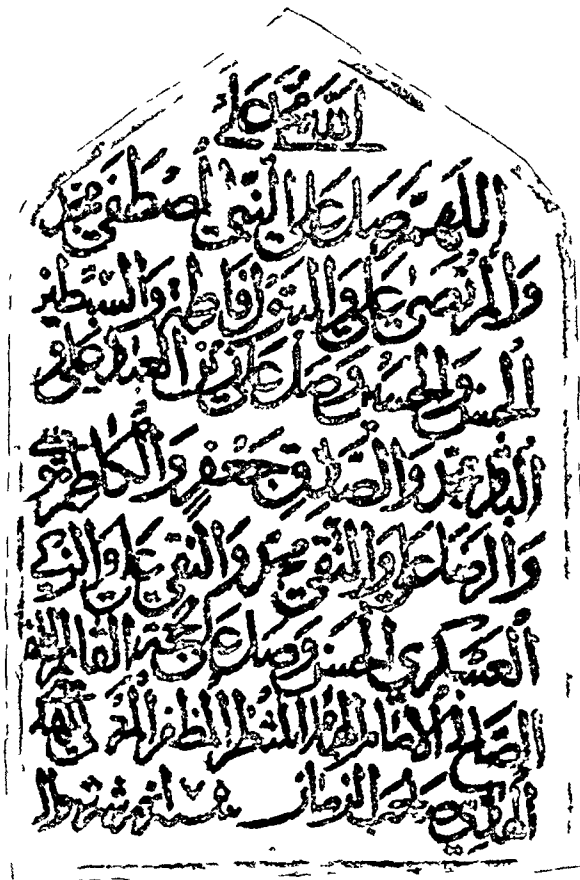 الله محمد علي
اللهم صل على النبي المصطفى محمد
والمرتضى علي والبتول فاطمة والسبطين
الحسن والحسين وصل على زين العباد علي و
الباقر محمد والصادق جعفر والكاظم موسى
والرضا علي والتقي محمد والنقي علي والزكي
العسكري الحسن وصل على الحجة القائم الخلف
الصالح الإمام الهمام المنتظر المظفر المرضي
صاحب الزمان